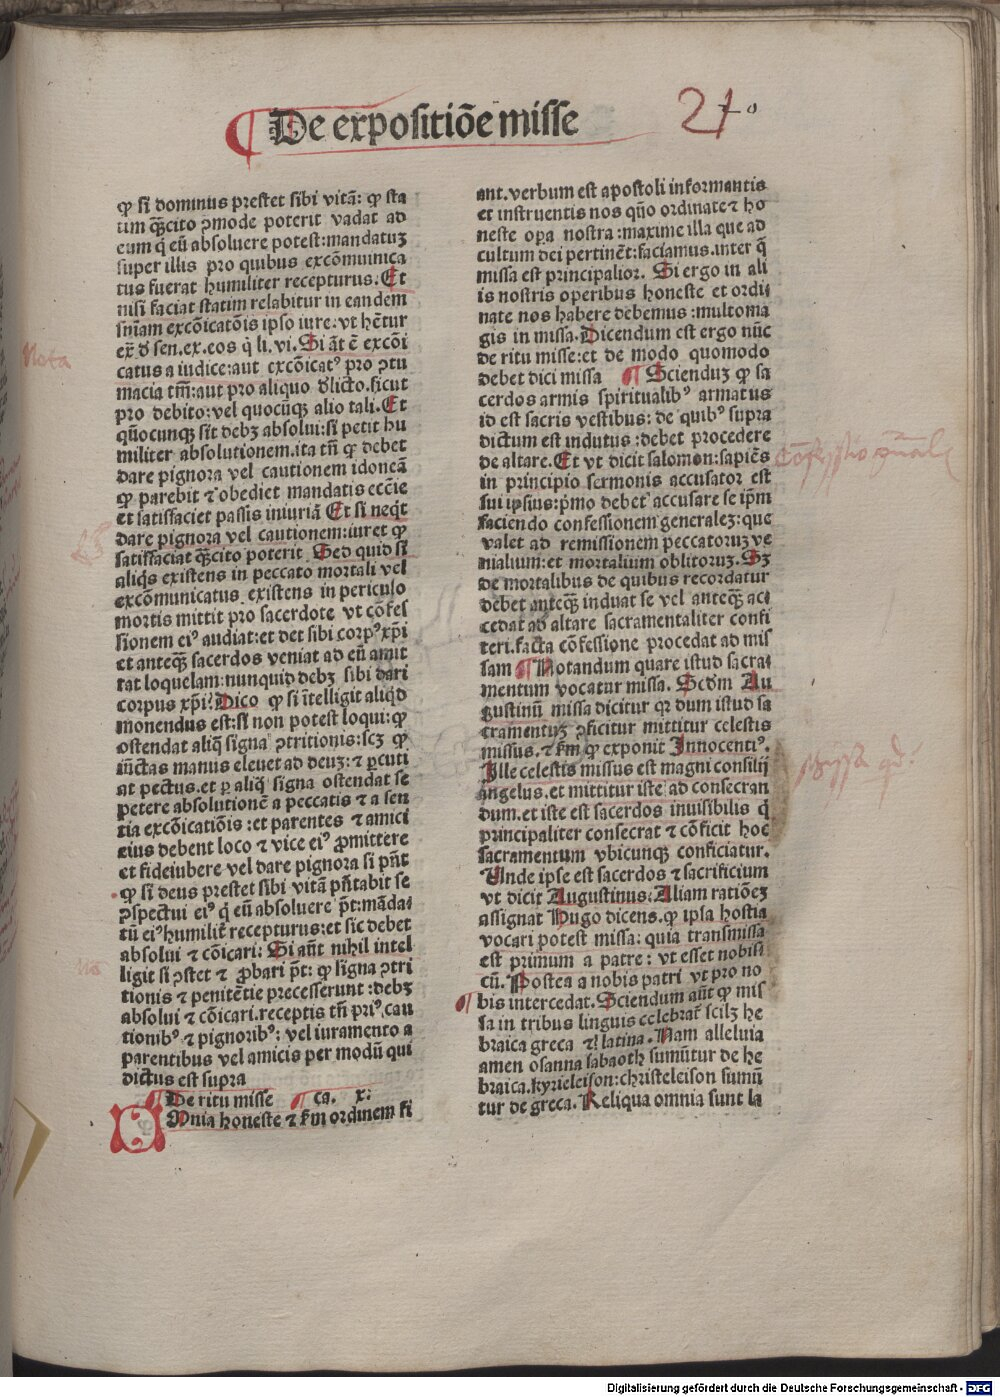 De expositiõe misse
21 0
ꝙ si dominus prestet sibi vitã: ꝙ sta
tim q̃cito ꝯmode poterit vadat ad
eum q̇ eũ absoluere potest: mandatuꝫ
super illis pro quibus excõmunica
tus fuerat humiliter recepturus. Et
nisi faciat statim relabitur in eandem
sniam excõicatõis ipso iure. vt hẽtur
ex̃ ð sen. ex. eos q̇ li. vi. Si ãt ẽ excõi
catus a iudice: aut excõicatꝰ pro ꝯtu
macia tm̃: aut pro aliquo ðlicto. sicut
pro debito: vel quocũqꝫ alio tali. Et
qñocunqꝫ sit debꝫ absolui: si petit hu
militer absolutionem. ita tñ ꝙ debet
dare pignora vel cautionem idoneã
ꝙ parebit ⁊ obediet mandatis eccĩe
et satisfaciet passis iniuriã Et si neq̃t
dare pignora vel cautionem: iuret ꝙ
satisfaciat q̃cito poterit Sed quid si
aliqs existens in peccato mortali vel
excõmunicatus existens in periculo
mortis mittit pro sacerdote vt cõfes
sionem eiꝰ audiat: et det sibi corpꝰ xp̃i
et anteq̃ sacerdos veniat ad eũ amit
tat loquelam: nunquid debꝫ sibi dari
corpus xp̃i: Dico ꝙ si ĩtelligit aliqd
monendus est: si non potest loqui: ꝙ
ostendat aliq̃ signa ꝯtritionis: scꝫ ꝙ
iũctas manus eleuet ad deuꝫ: ⁊ ꝑcuti
at pectus. et ꝑ aliq̃ signa ostendat se
petere absolutionẽ a peccatis ⁊ a sen
tia excõicatiõis: et parentes ⁊ amici
eius debent loco ⁊ vice eiꝰ ꝓmittere
et fideiubere vel dare pignora si pñt
ꝙ si deus prestet sibi vitã pñtabit se
ꝯspectui eiꝰ q̇ eũ absoluere pt̃: mãda⸗
tũ eiꝰ humilit̃ recepturus: et sic debet
absolui ⁊ cõicari: Si aũt nihil intel
ligit si ꝯstet ⁊ ꝓbari pt̃: ꝙ signa ꝯtri
tionis ⁊ penitẽtie precesserunt: debꝫ
absolui ⁊ cõicari. receptis tñ priꝰ cau
tionibꝰ ⁊ pignoribꝰ: vel iuramento a
parentibus vel amicis per modũ qui
dictus est supra
De ritu misse ca. x.
OMnia honeste ⁊ ẜm ordinem fi
ant. verbum est apostoli informantis
et instruentis nos qũo ordinate ⁊ ho
neste oꝑa nostra: maxime illa que ad
cultum dei pertinẽt: faciamus. inter q̃
missa est principalior. Si ergo in ali
is nostris operibus honeste et ordi⸗
nate nos habere debemus: multoma
gis in missa. Dicendum est ergo nũc
de ritu misse: et de modo quomodo
debet dici missa Scienduꝫ ꝙ sa
cerdos armis spiritualibꝰ armatus
id est sacris vestibus: de quibꝰ supra
dictum est indutus: debet procedere
de altare. Et vt dicit salomon: sapiẽs
in principio sermonis accusator est
sui ipsius: pͥmo debet accusare se ip̃m
faciendo confessionem generaleꝫ: que
valet ad remissionem peccatoruꝫ ve
nialium: et mortalium oblitoruꝫ. Sꝫ
de mortalibus de quibus recordatur
debet anteq̃ induat se vel anteq̃ ac⸗
cedat ad altare sacramentaliter confi
teri. facta cõfessione procedat ad mis
sam Notandum quare istud sacra⸗
mentum vocatur missa. Scðm Au
gustinũ missa dicitur qꝛ dum istud sa
cramentuꝫ ꝑficitur mittitur celestis
missus. ⁊ ẜm ꝙ exponit Innocentiꝰ.
Ille celestis missus est magni consilij
angelus. et mittitur iste ad consecran
dum. et iste est sacerdos inuisibilis q̇
principaliter consecrat ⁊ cõficit hoc
sacramentum vbicunqꝫ conficiatur.
Unde ipse est sacerdos ⁊ sacrificium
vt dicit Augustinus: Aliam ratiõeꝫ
assignat Hugo dicens. ꝙ ipsa hostia
vocari potest missa: quia transmissa
est primum a patre: vt esset nobis⸗
cũ. Postea a nobis patri vt pro no
bis intercedat. Sciendum aũt ꝙ mis
sa in tribus linguis celebrat̃ scilꝫ he
braica greca ⁊ latina. Nam alleluia
amen osanna sabaoth sumũtur de he
braica. kyrieleison: christeleison sumũ
tur de greca. Reliqua omnia sunt la
Nota
Digitalisierung gefördert durch die Deutsche Forschungsgemeinschaft - DFG